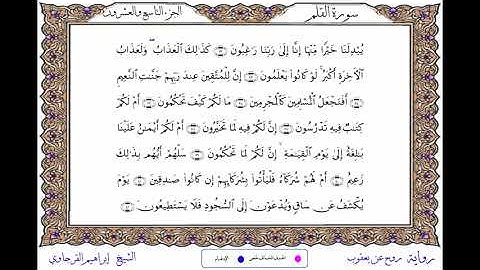 سورة القلم الجزء التاسع والعشرون
يُبْدِلَنَا خَيْرًا مِّنْهَا إِنَّا إِلَىٰ رَبِّنَا رَٰغِبُونَ كَذَٰلِكَ ٱلْعَذَابُ ۖ وَلَعَذَابُ
ٱلْأَخِرَةِ أَكْبَرُ ۚ لَوْ كَانُوا۟ يَعْلَمُونَ إِنَّ لِلْمُتَّقِينَ عِندَ رَبِّهِمْ جَنَّٰتِ ٱلنَّعِيمِ
أَفَنَجْعَلُ ٱلْمُسْلِمِينَ كَٱلْمُجْرِمِينَ مَا لَكُمْ كَيْفَ تَحْكُمُونَ أَمْ لَكُمْ
كِتَٰبٌ فِيهِ تَدْرُسُونَ إِنَّ لَكُمْ فِيهِ لَمَا تَخَيَّرُونَ أَمْ لَكُمْ أَيْمَٰنٌ عَلَيْنَا
بَٰلِغَةٌ إِلَىٰ يَوْمِ ٱلْقِيَٰمَةِ ۙ إِنَّ لَكُمْ لَمَا تَحْكُمُونَ سَلْهُمْ أَيُّهُم بِذَٰلِكَ
زَعِيمٌ أَمْ لَهُمْ شُرَكَآءُ فَلْيَأْتُوا۟ بِشُرَكَآئِهِمْ إِن كَانُوا۟ صَٰدِقِينَ يَوْمَ
يُكْشَفُ عَن سَاقٍ وَيُدْعَوْنَ إِلَى ٱلسُّجُودِ فَلَا يَسْتَطِيعُونَ
رواية روح عن يعقوب الإدغام الشيخ إبراهيم الفرجاوي